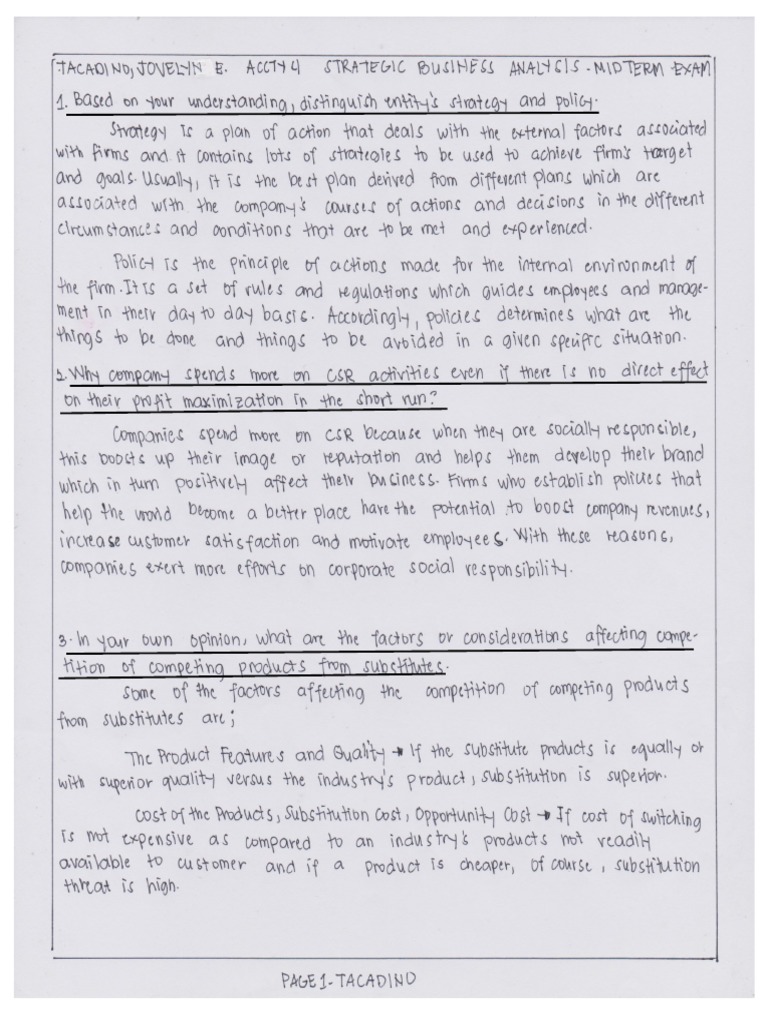 TACADINO, JOVELYN E. ACCTY 4 STRATEGIC BUSINESS ANALYSIS - MIDTERM EXAM
1. Based on your understanding, distinguish entity's strategy and policy.
Strategy is a plan of action that deals with the external factors associated
with firms and it contains lots of strategies to be used to achieve firm's target
and goals. Usually, it is the best plan derived from different plans which are
associated with the company's courses of actions and decisions in the different
circumstances and conditions that are to be met and experienced.
Policy is the principle of actions made for the internal environment of
the firm. It is a set of rules and regulations which guides employees and manage-
ment in their day to day basis. Accordingly, policies determines what are the
things to be done and things to be avoided in a given specific situation.
2. Why company spends more on CSR activities even if there is no direct effect
on their profit maximization in the short run?
Companies spend more on CSR because when they are socially responsible,
this boosts up their image or reputation and helps them develop their brand
which in turn positively affect their business. Firms who establish policies that
help the world become a better place have the potential to boost company revenues,
increase customer satisfaction and motivate employees. With these reasons,
companies exert more efforts on corporate social responsibility.
3. In your own opinion, what are the factors or considerations affecting compe-
tition of competing products from substitutes.
Some of the factors affecting the competition of competing products
from substitutes are;
The Product Features and Quality → If the substitute products is equally or
with superior quality versus the industry's product, substitution is superior.
Cost of the Products, Substitution Cost, Opportunity Cost → If cost of switching
is not expensive as compared to an industry's products not readily
available to customer and if a product is cheaper, of course, substitution
threat is high.
PAGE 1 - TACADINO